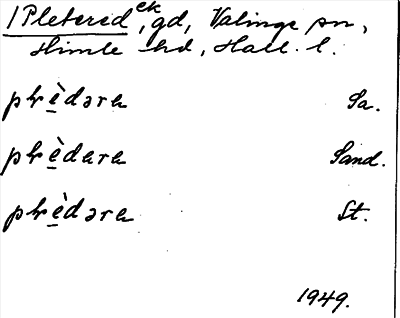 1 Pletered ek, gd, Valinge sn,
Himle hd, Hall. l.
plrèdəra Sa.
plrèdara Sand.
plrèdəra St.
1949.